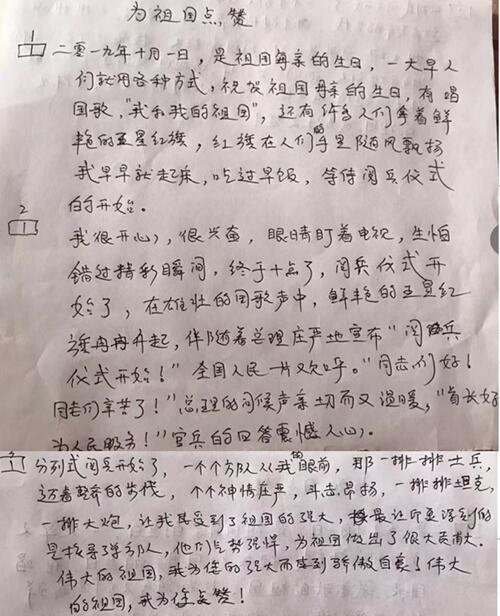 为祖国点赞
1
二零一九年十月一日，是祖国母亲的生日，一大早人
们就用各种方式，祝贺祖国母亲的生日，有唱
国歌，"我和我的祖国"，还有许多人们拿着鲜
艳的五星红旗，红旗在人们的手里随风飘扬
我早早就起床，吃过早饭，等待阅兵仪式
的开始。
2
1
我很开心，很兴奋，眼睛盯着电视，生怕
错过精彩瞬间，终于十点了，阅兵仪式开
始了，在雄壮的国歌声中，鲜艳的五星红
旗冉冉升起，伴随着总理庄严地宣布"阅兵
仪式开始！"全国人民一片欢呼。"同志们好！
同志们辛苦了！"总理的问候声亲切而又温暖，"首长好
为人民服务！"官兵的回答震憾人心。
分列式阅兵开始了，一个个方队从我的眼前，那一排排士兵，
迈着整齐的步伐，个个神情庄严，斗志昂扬，一排排坦克，
一排大炮，让我感受到了祖国的强大，最让印象深刻的
是 方队，他们气势强悍，为祖国做出了很大贡献。
伟大的祖国，我为您的强大而感到骄傲自豪！伟大
的祖国，我为您点赞！